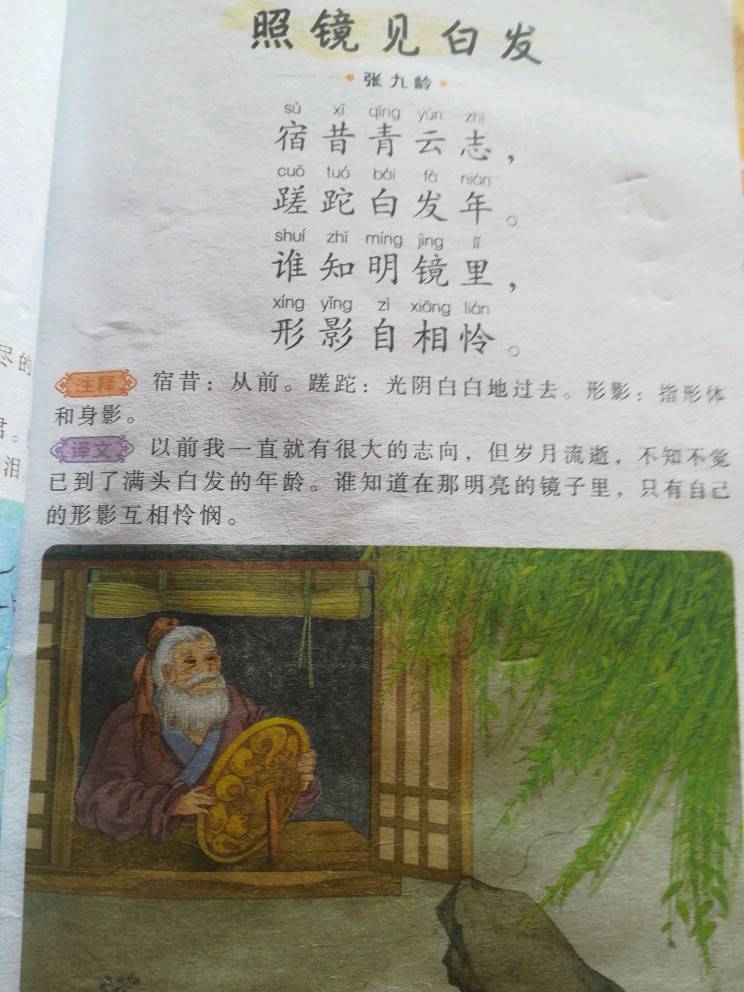 照镜见白发
张九龄
sù xī qīng yún zhì
宿昔青云志，
cuō tuó bái fà nián
蹉跎白发年。
shuí zhī míng jìng lǐ
谁知明镜里，
xíng yǐng zì xiāng lián
形影自相怜。
注释 宿昔：从前。蹉跎：光阴白白地过去。形影：指形体
和身影。
译文 以前我一直就有很大的志向，但岁月流逝，不知不觉
已到了满头白发的年龄。谁知道在那明亮的镜子里，只有自己
的形影互相怜悯。
尽的
泪